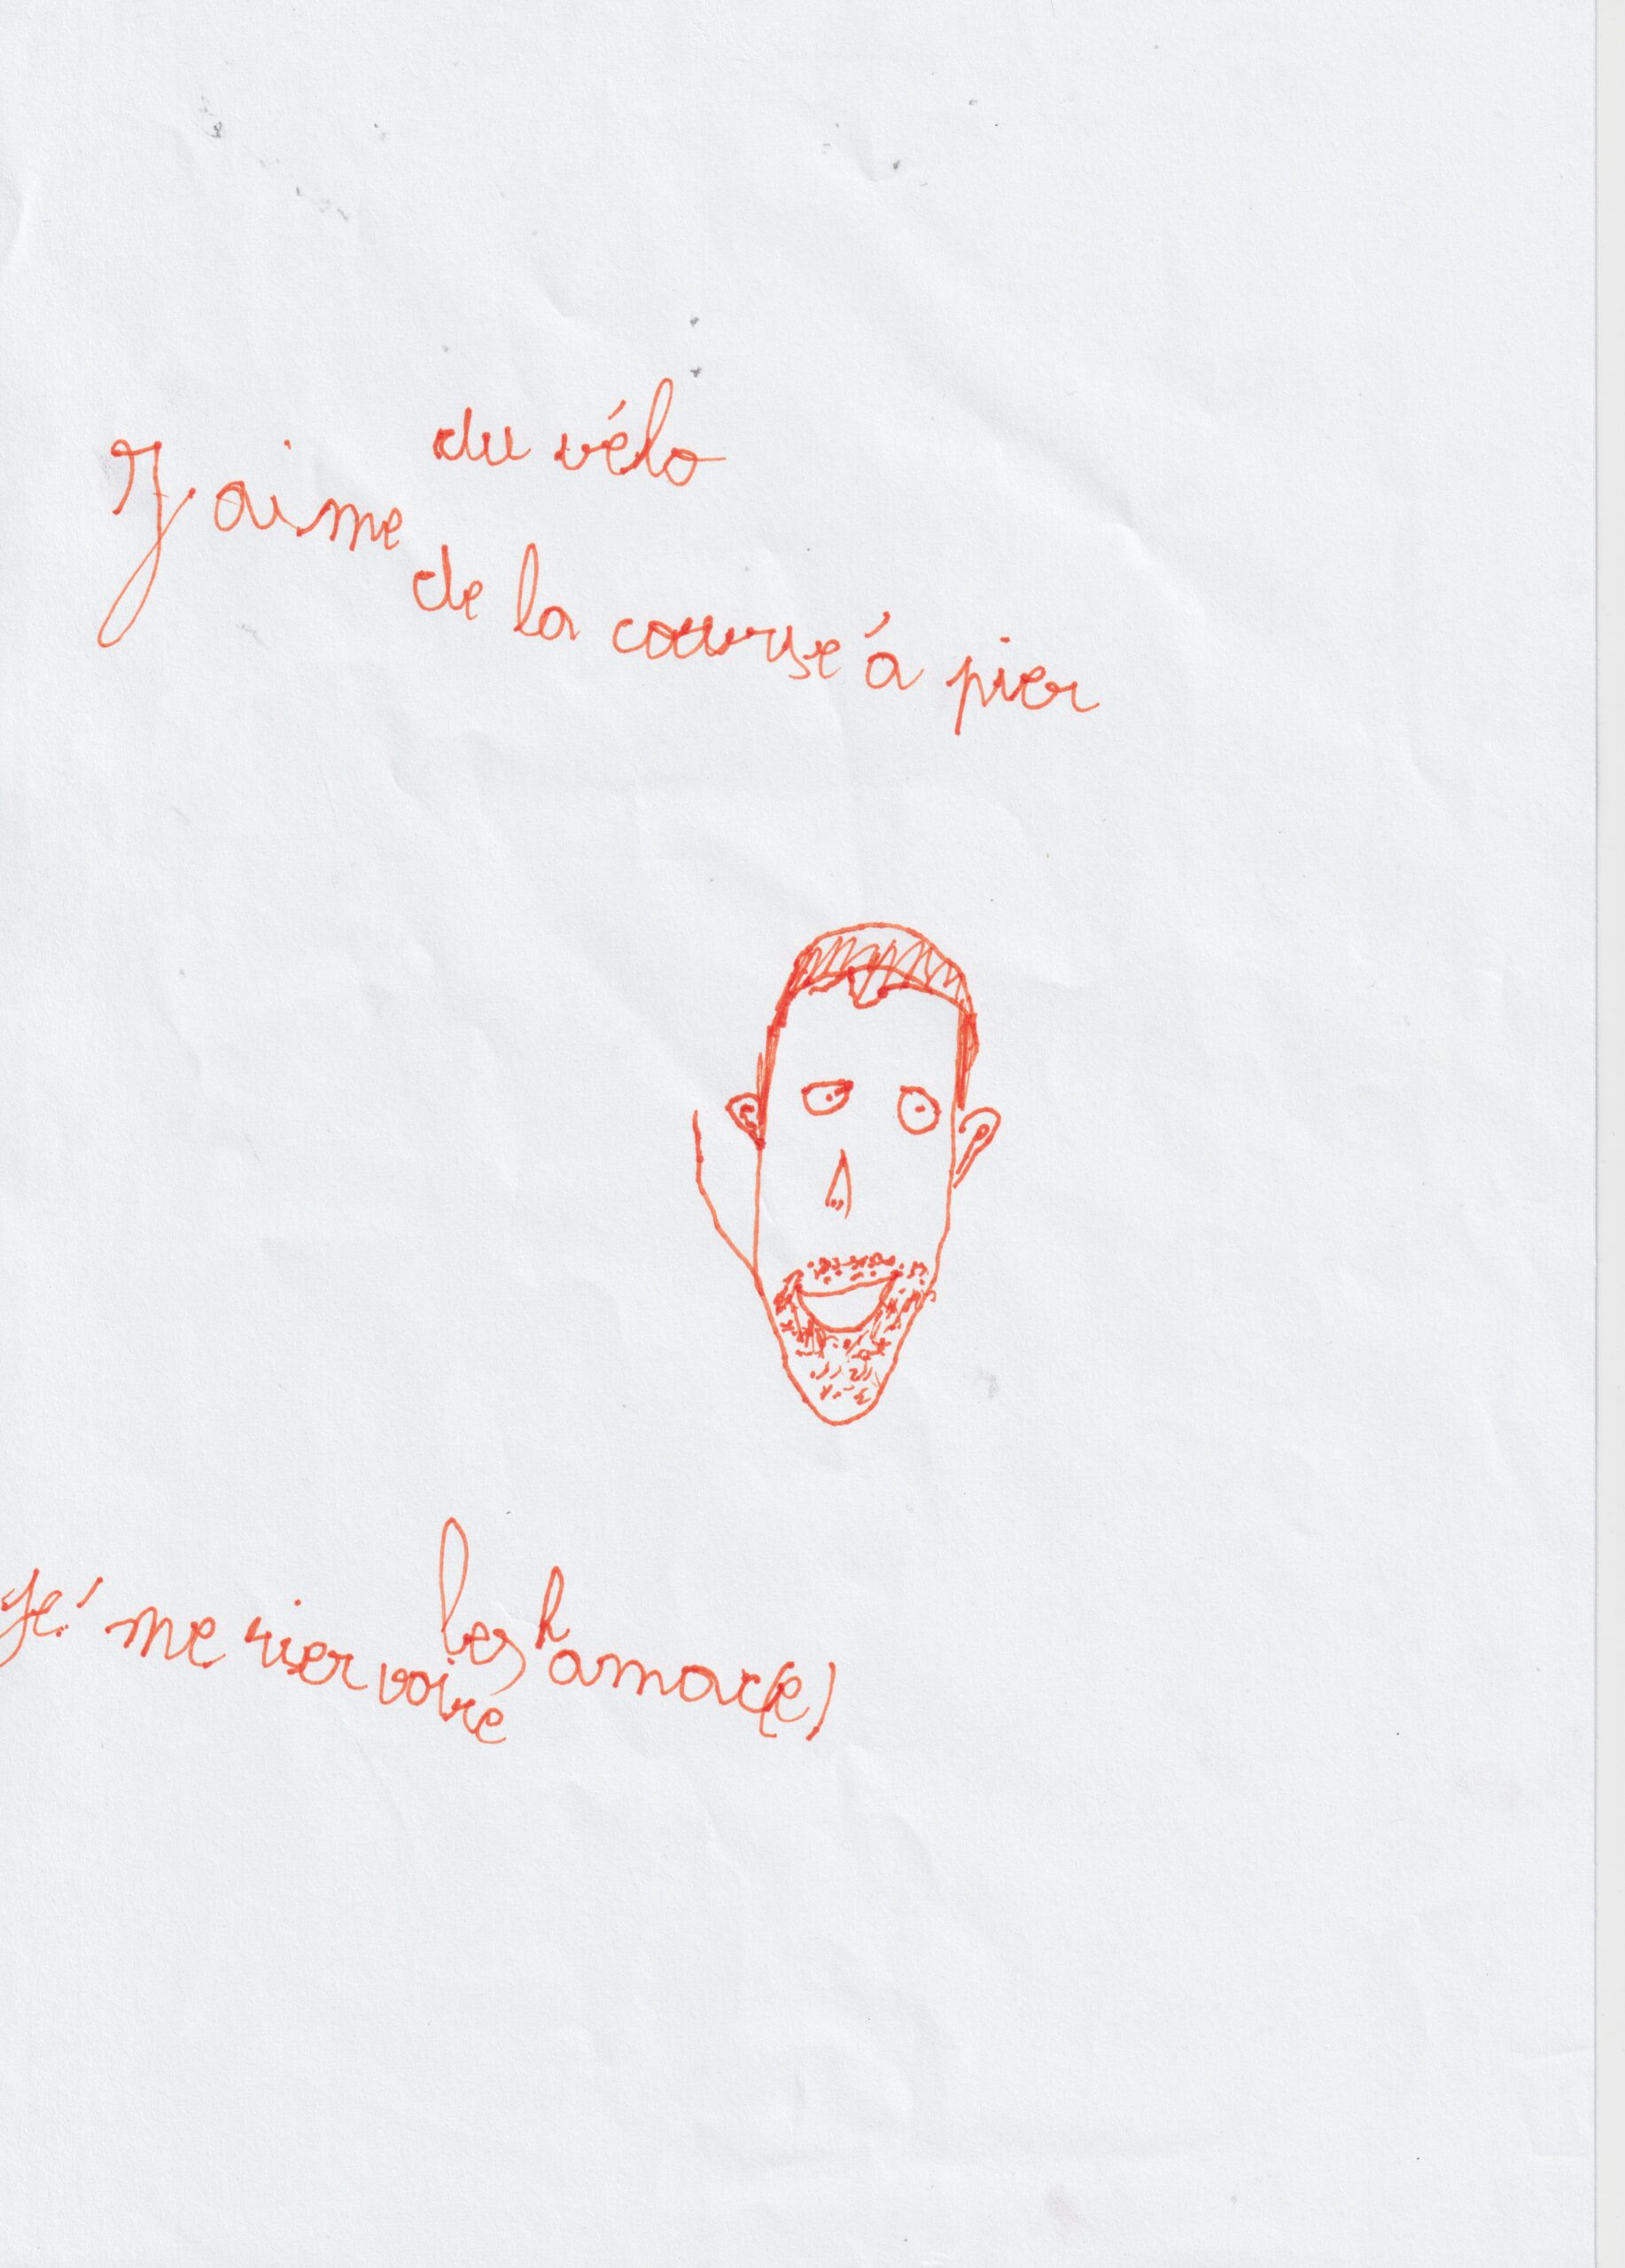 du vélo
J'aime
de la course à pier
les hamac(e)
Je me rier voiré